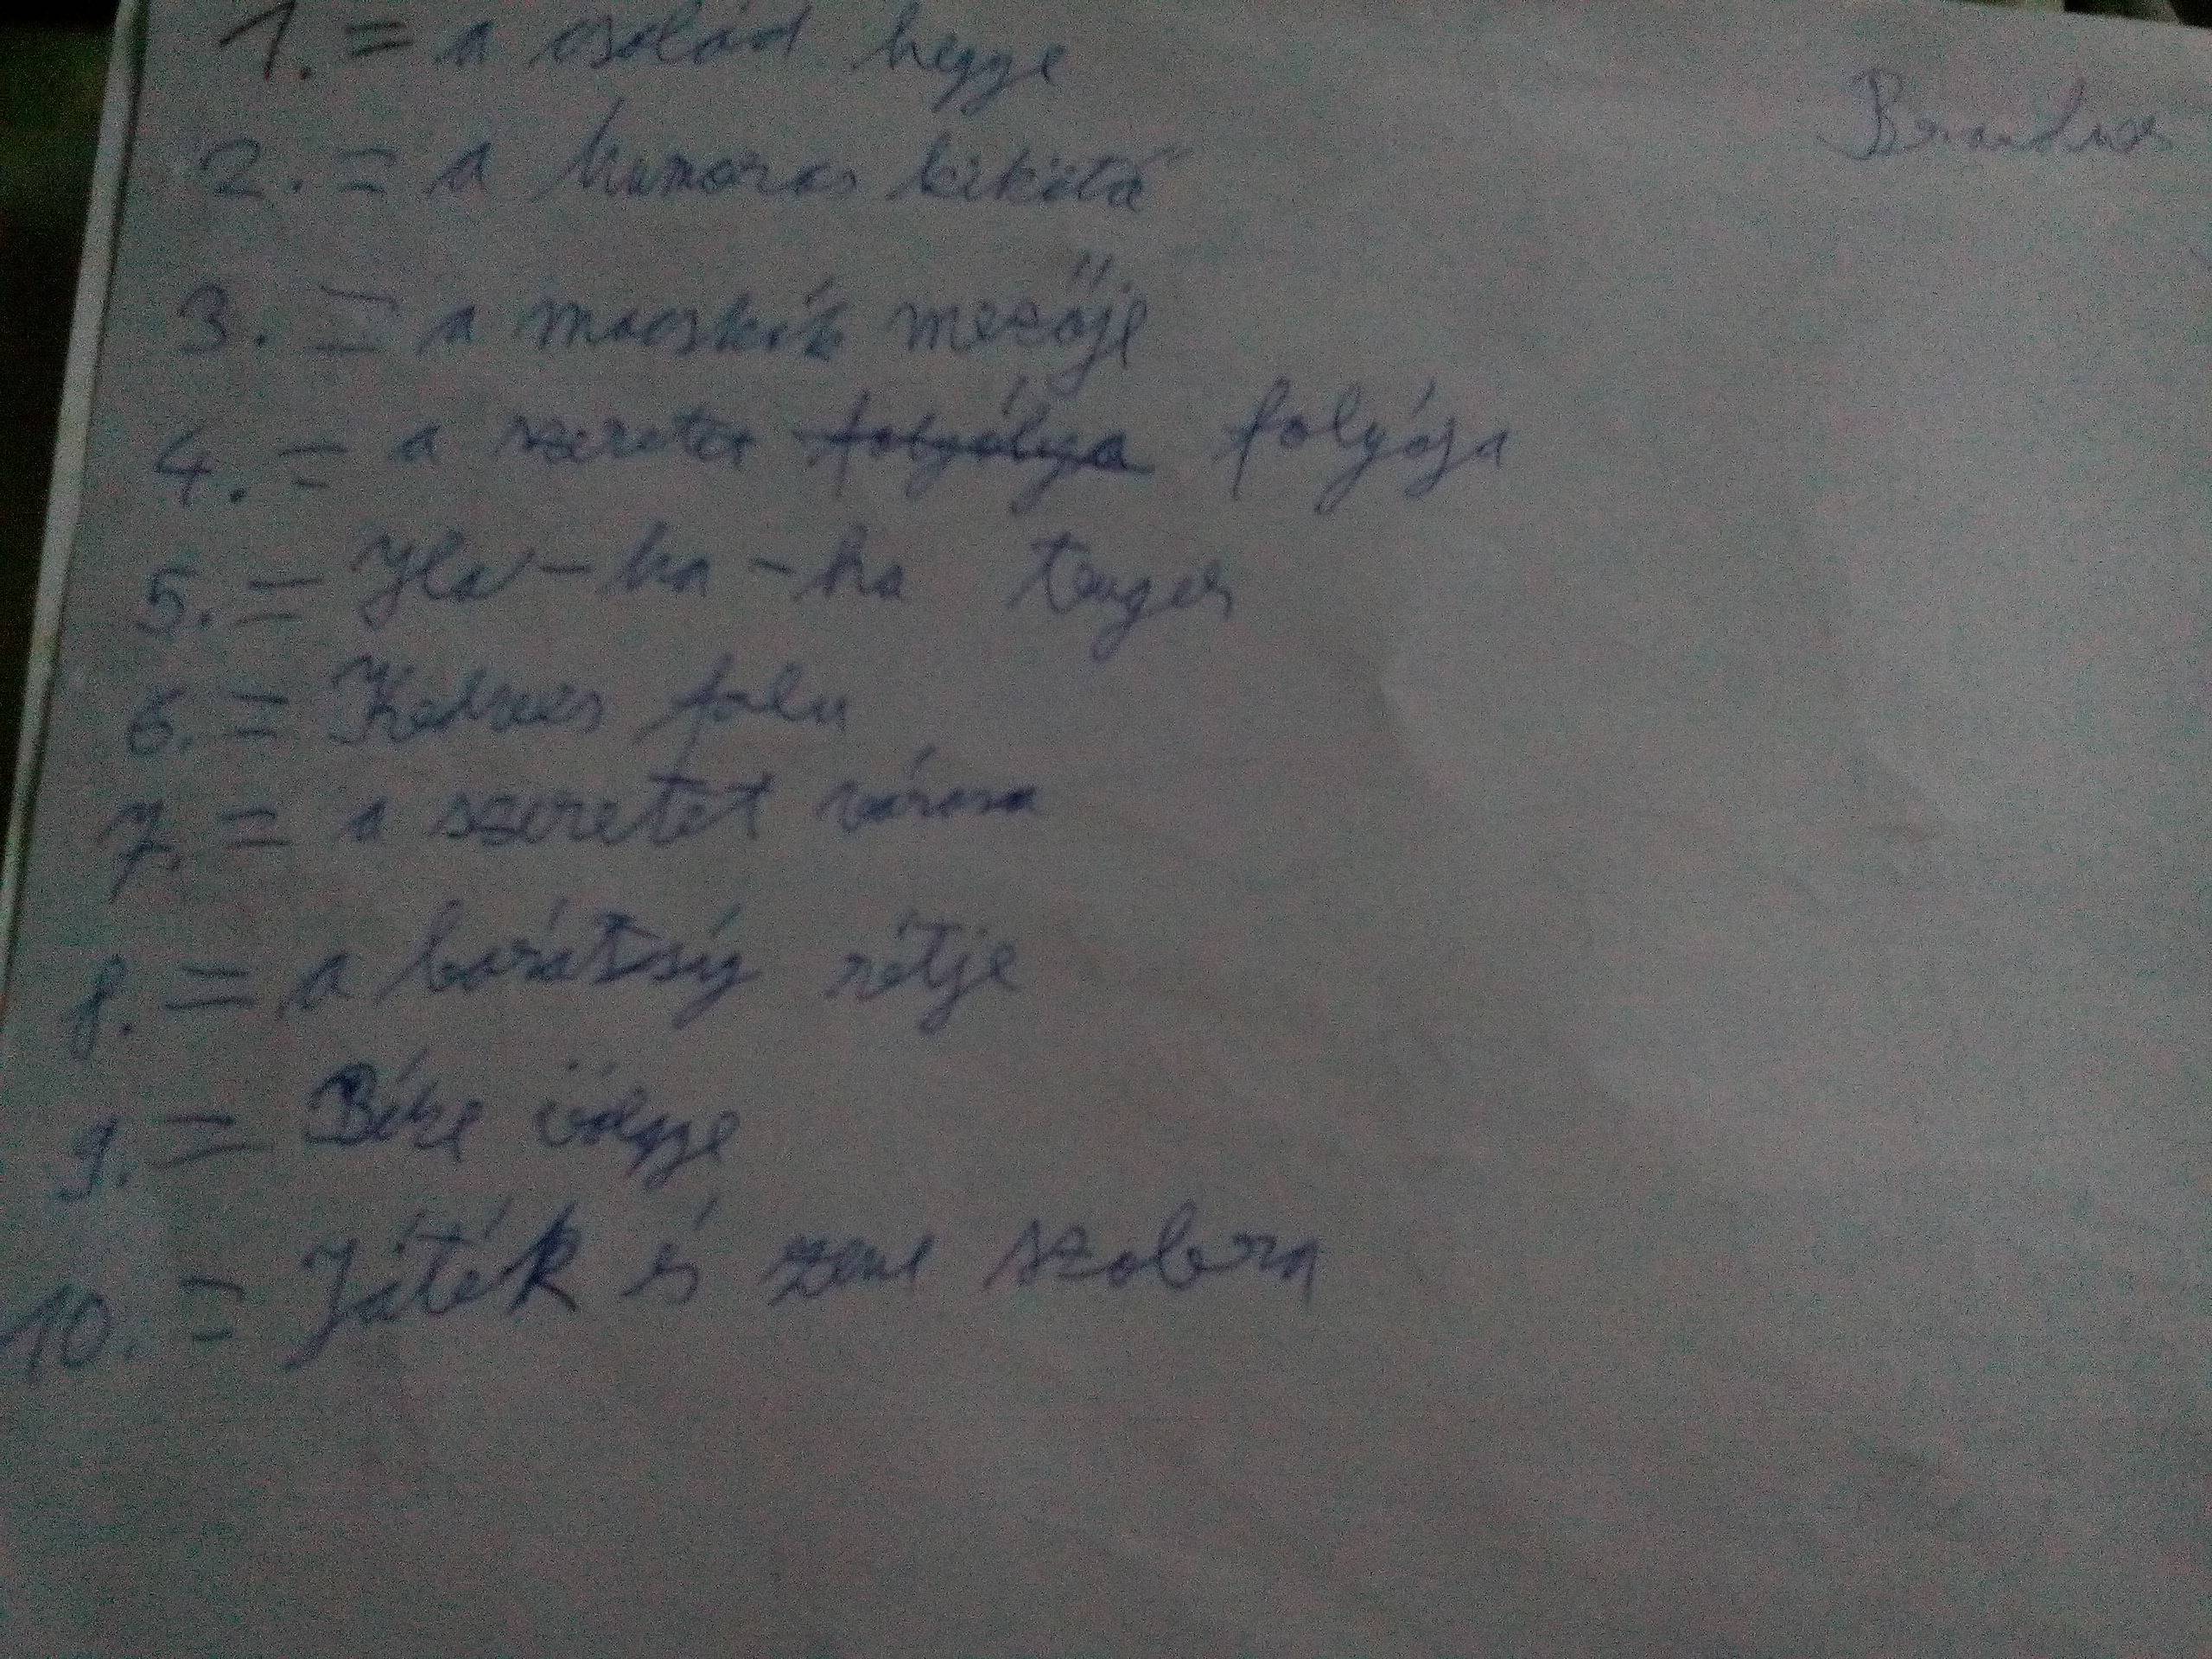 1. = a család hegye
2. = a humoros kikötő
3. = a macskák mezője
4. = a szeretet folyója
5. = Ha - ha - ha tenger
6. = Kedves falu
7. = a szeretet városa
8. = a barátság rétje
9. = Béke völgye
10. = Játék és zene szobra